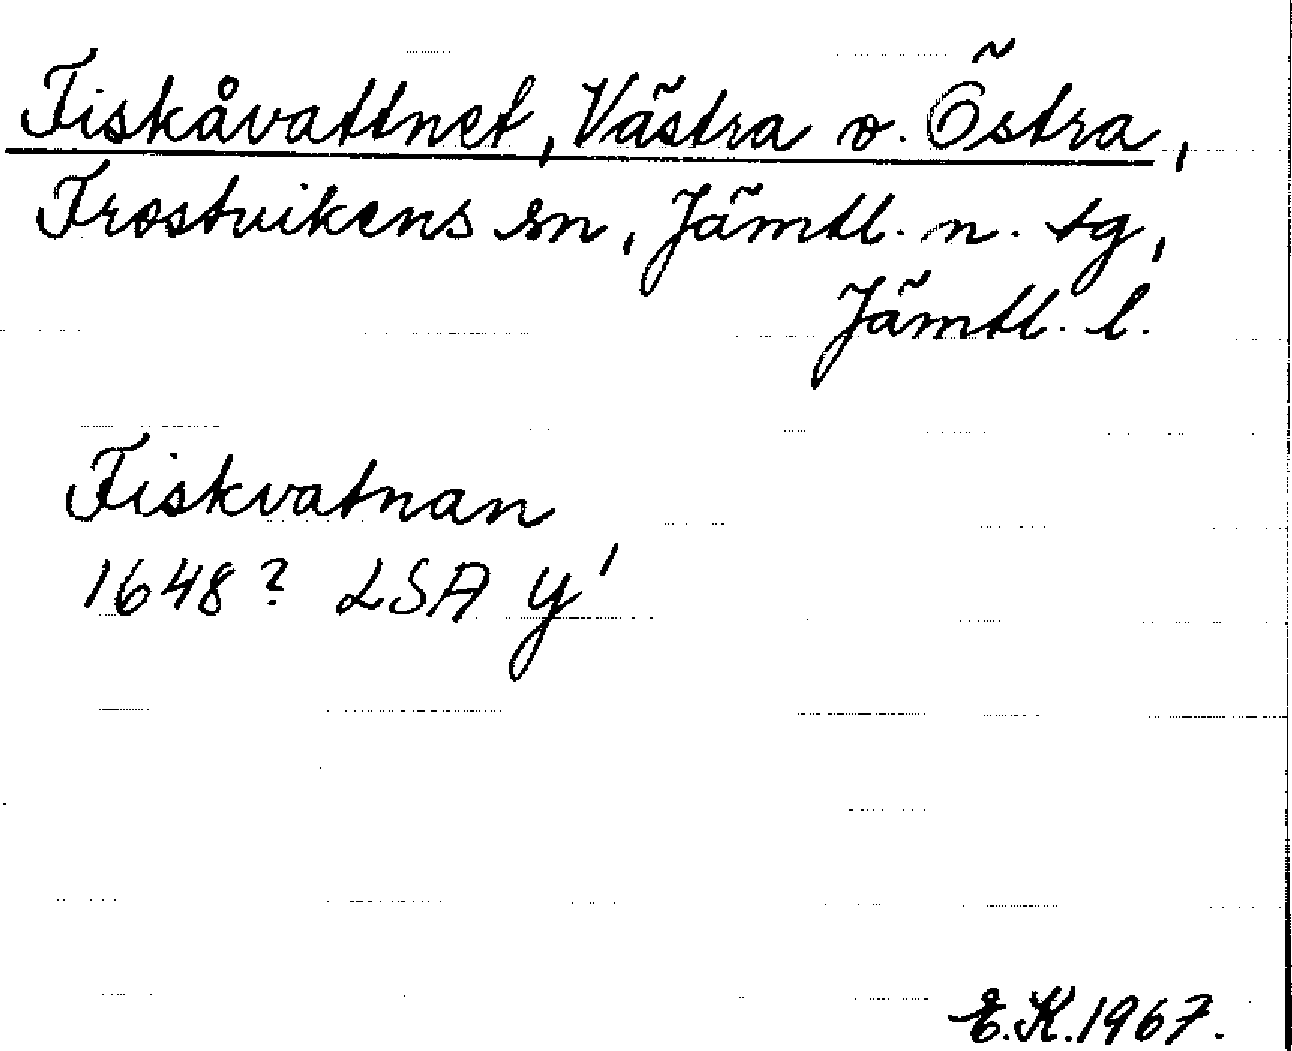 Fiskåvattnet, Västra o. Östra,
Frostvikens sn, Jämtl. n. tg,
Jämtl. l.
Fiskvatnan
1648? LSA y'
E.K. 1967.